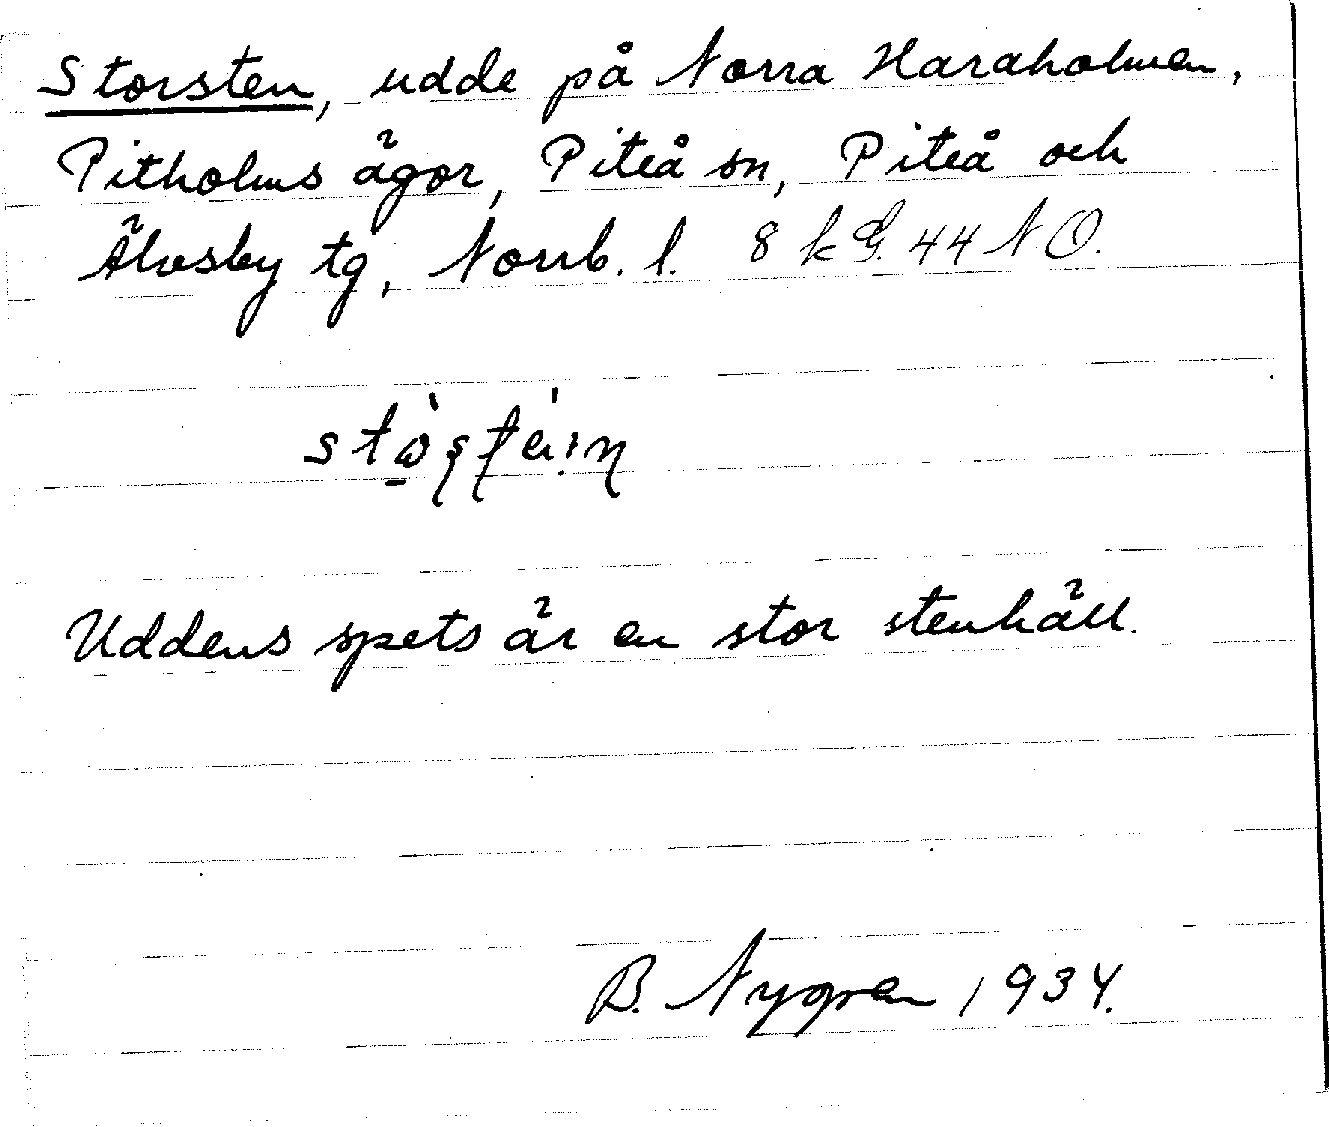 Storsten, udde på Norra Haraholmen,
Pitholms ägor, Piteå sn, Piteå och
Älvsby tg, Norrb. l. 8 k G. 44 N O.
Uddens spets är en stor stenhäll.
B. Nygren 1934.